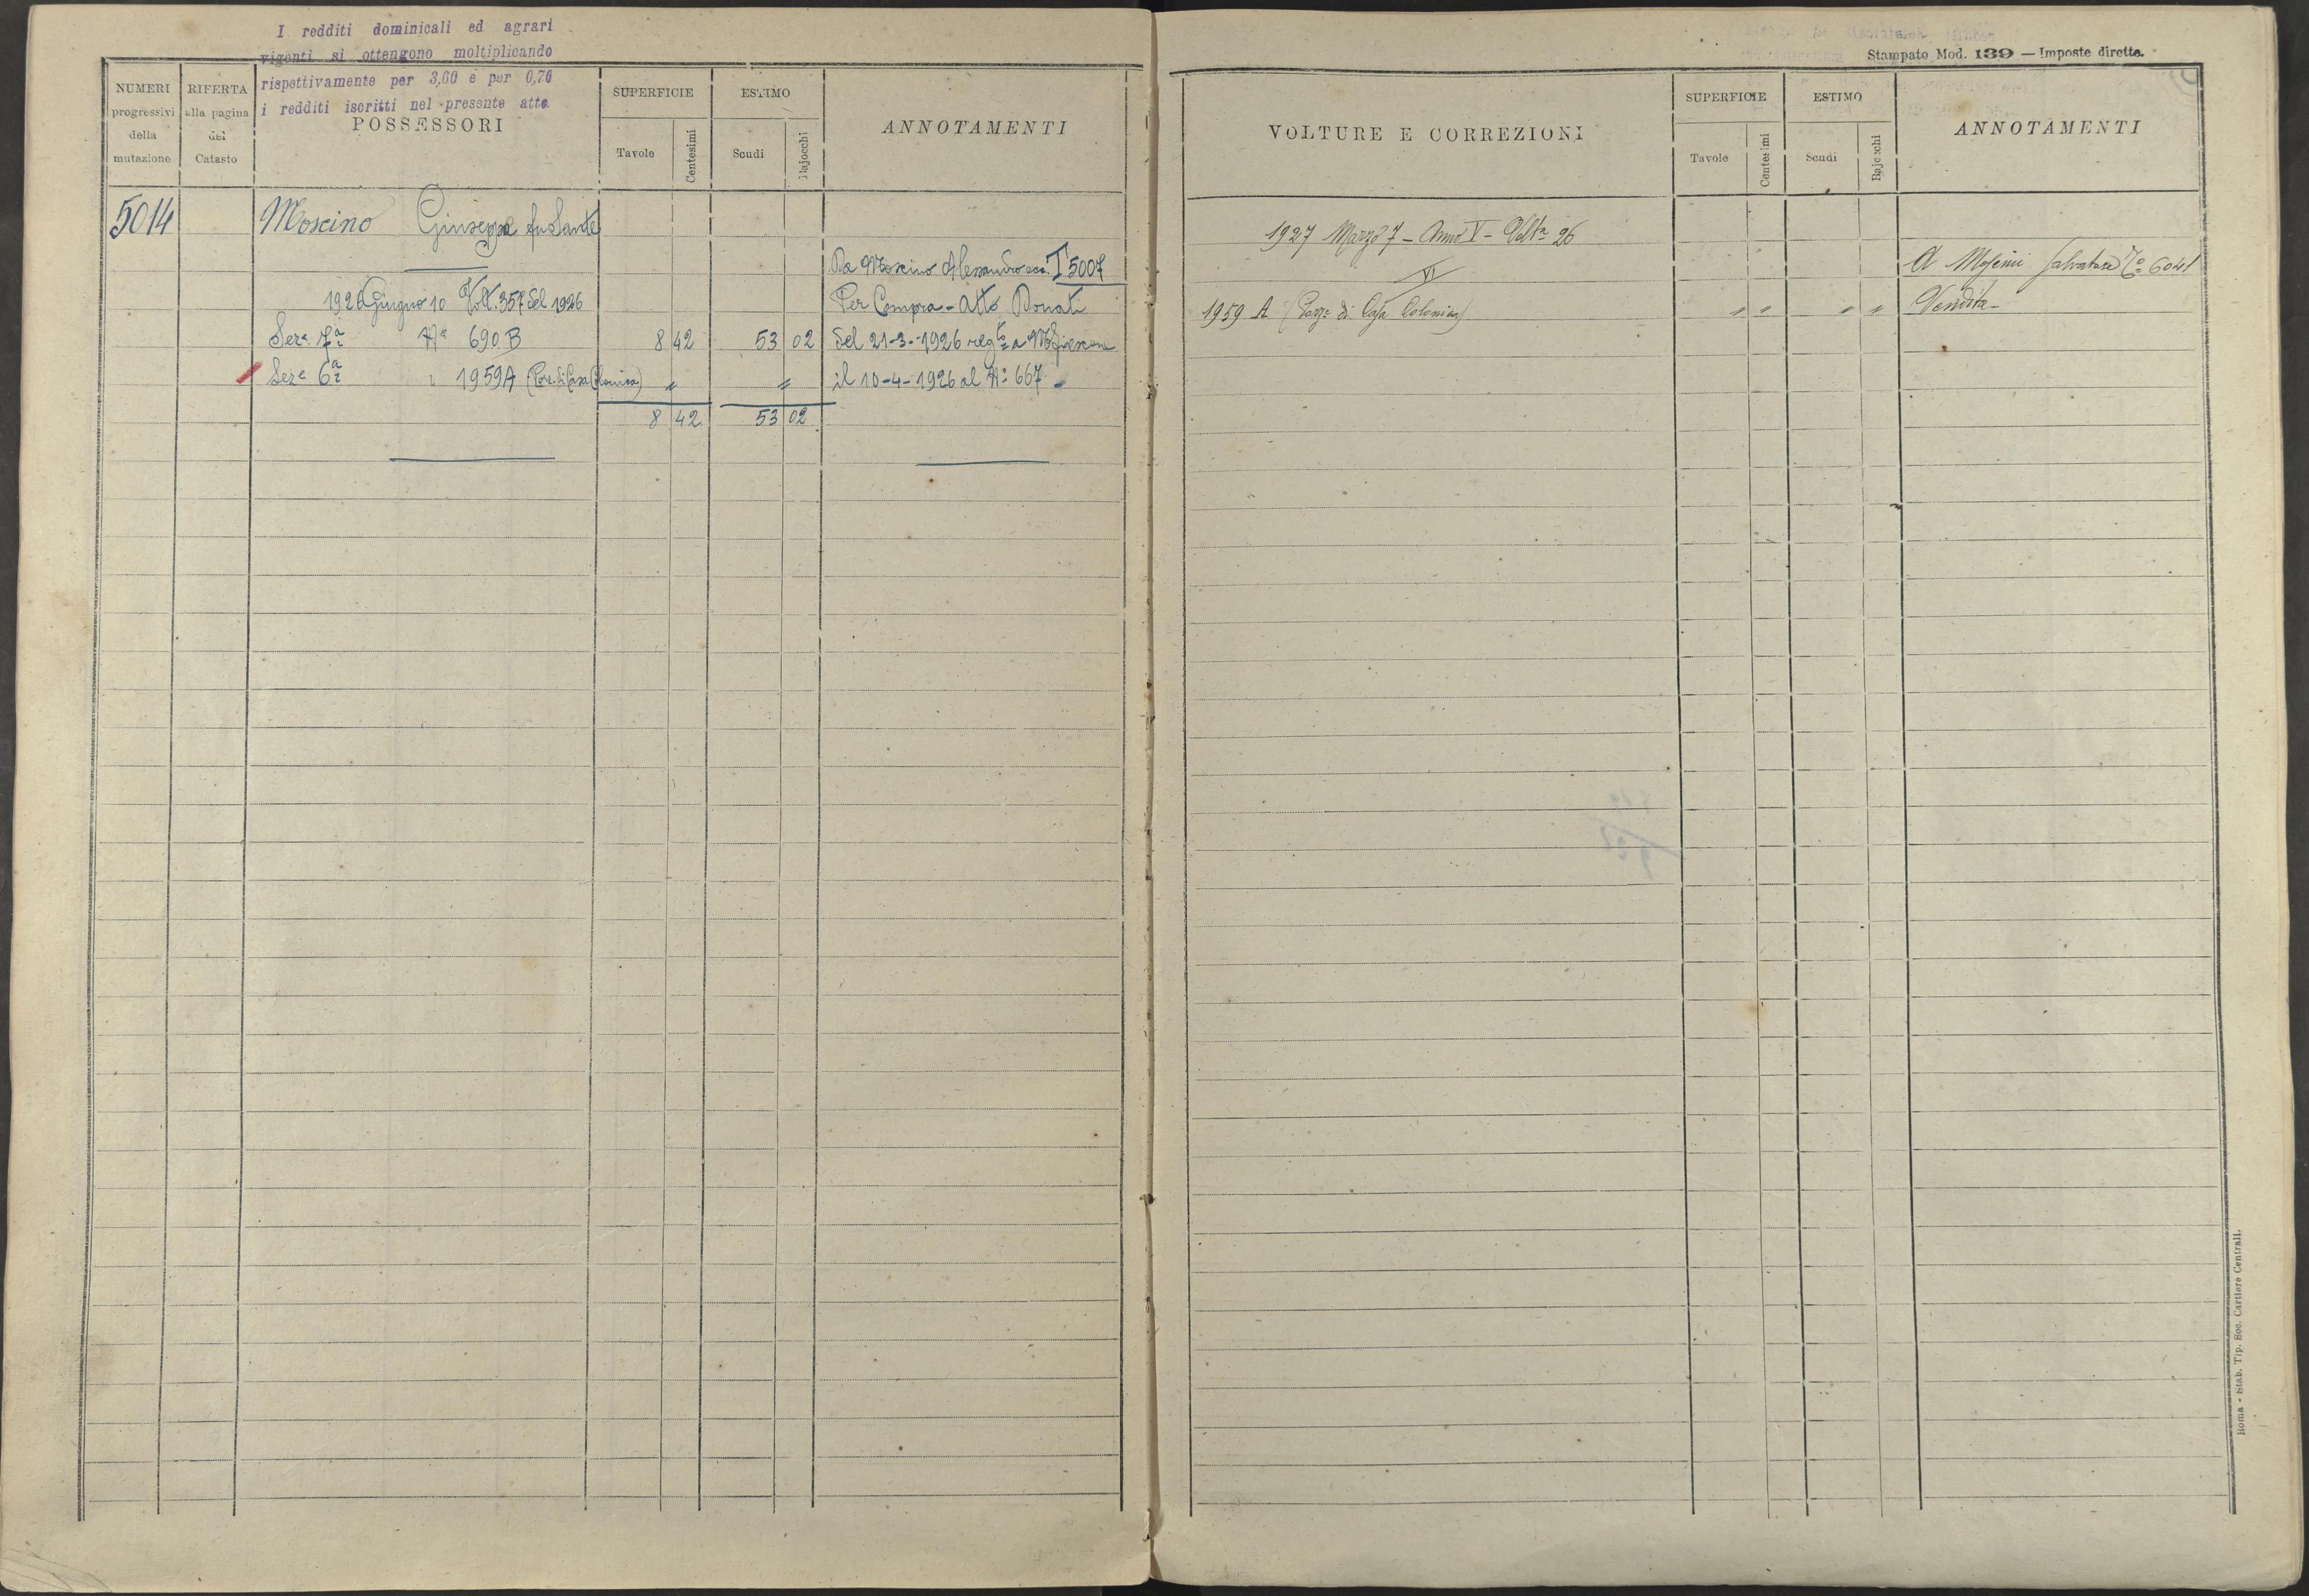 I redditi dominicali ed agrari
vigenti si ottengono moltiplicando
rispettivamente per 3,60 e per 0,70
i redditi iscritti nel presente atto
NUMERI progressivi della mutazione
RIFERTA alla pagina del Catasto
POSSESSORI
SUPERFICIE
Tavole Centesimi
ESTIMO
Scudi Bajocchi
ANNOTAMENTI
5014 Moscino Giuseppe fu Sante
Da Moscino Alessandro T 5007
1926 Giugno 10 Volt. 357 del 1926 Per Compra - Atto Donati
Seze 7a No 690 B 8 42 53 02 del 21-3-1926 regto a
Seze 6a " 1959 A (Porz. di Casa Colonica) " " il 10-4-1926 al No 667
8 42 53 02
Stampato Mod. 139 — Imposte dirette.
VOLTURE E CORREZIONI
SUPERFICIE
Tavole Centesimi
ESTIMO
Scudi Bajocchi
ANNOTAMENTI
1927 Marzo 7 - Anno V - Volta 26
VI
A Salvatore 6041
1959 A (Porz. di Casa Colonica) " " " " Vendita -
Roma - Stab. Tip. Soc. Cartiere Centrali.